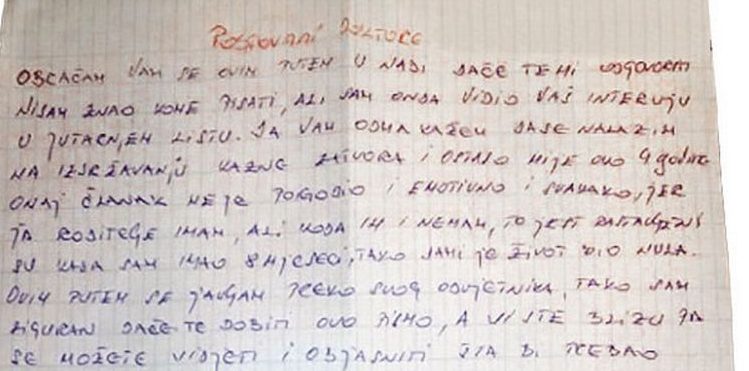 POŠTOVANI DOKTORE
OBRAĆAM VAM SE OVIM PUTEM U NADI DAĆE TE MI ODGOVORITI
NISAM ZNAO KOME PISATI, ALI SAM ONDA VIDIO VAŠ INTERVJU
U JUTARNJEM LISTU. JA VAM ODMA KAŽEM DASE NALAZIM
NA IZDRŽAVANJU KAZNE ZATVORA I OSTALO MIJE OVO 4 godine
ONAJ ČLANAK ME JE POGODIO I EMOTIVNO I SVAKAKO, JER
JA RODITELJE IMAM, ALI KODA IH I NEMAM, TO JEST RASTAVLJENI
SU KADA SAM IMAO 8 MJESECI, TAKO DAMI JE ŽIVOT BIO NULA.
OVIM PUTEM SE JAVLJAM PREKO SVOG ODVJETNIKA, TAKO SAM
SIGURAN DAĆE TE DOBITI OVO PISMO, A VI STE BLIZU PA
SE MOŽETE VIDJETI I OBJASNITI ŠTA BI TREBAO